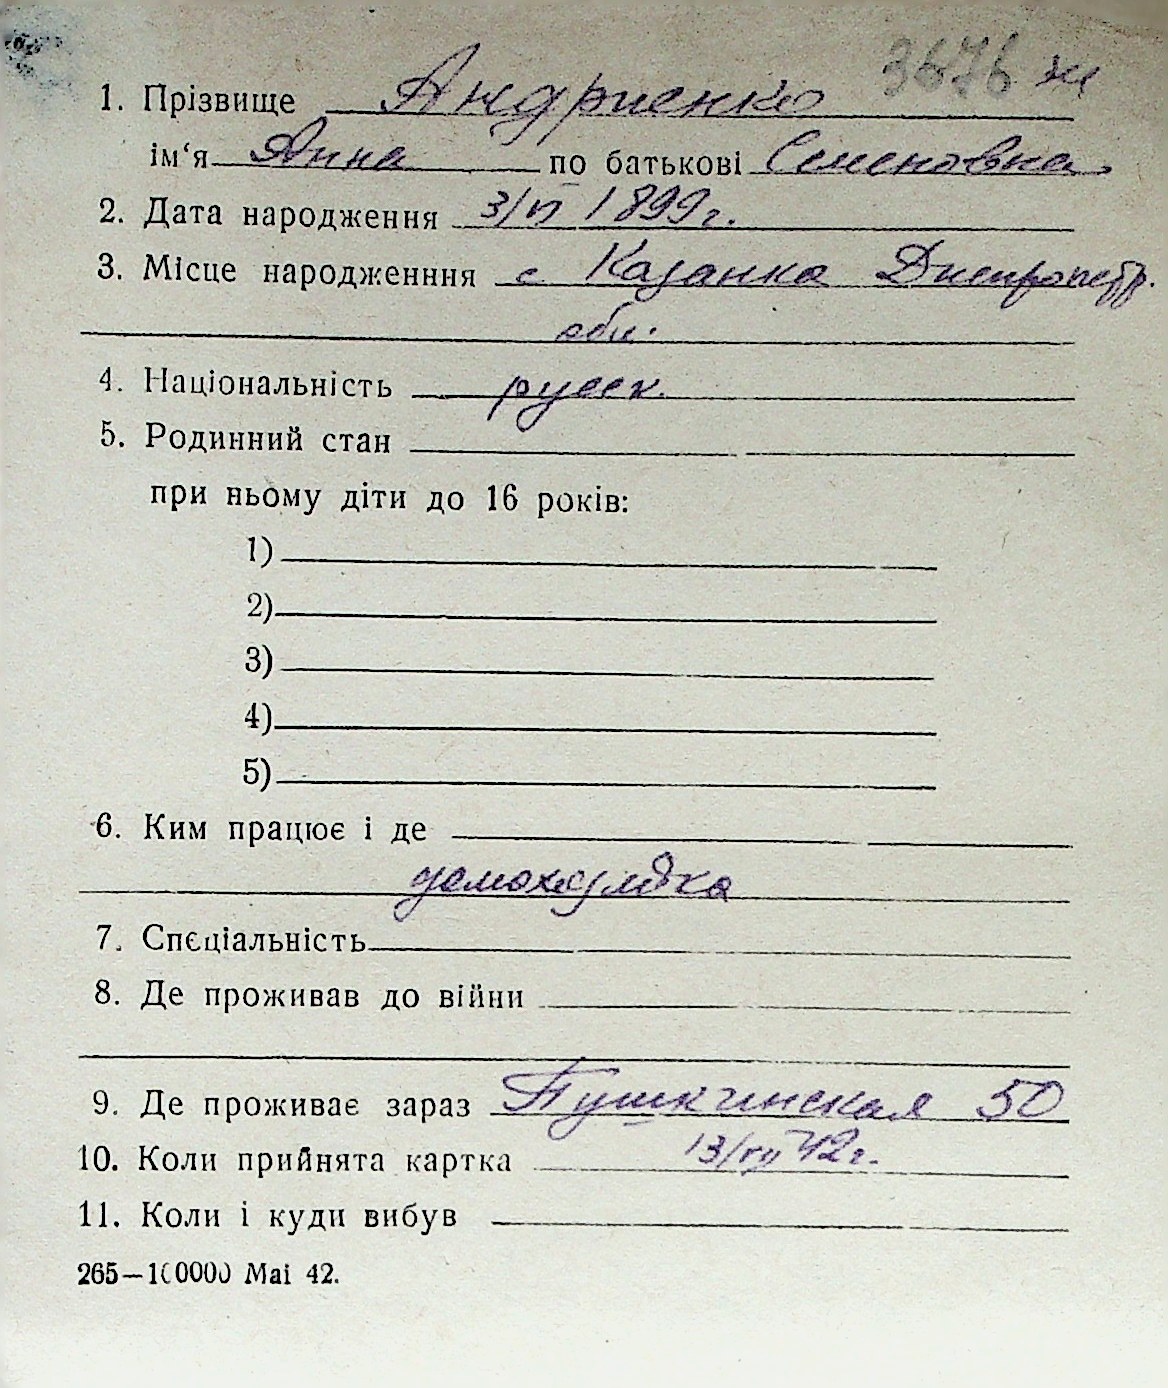 3676 ж
1. Прізвище Андриенко
ім‘я Анна по батькові Семеновна
2. Дата народження 3/VI 1899г.
3. Місце народженння с Казанка Днепропетр.
обл.
4. Національність русск.
5. Родинний стан
при ньому діти до 16 років:
1)
2)
3)
4)
5)
6. Ким працює і де
домохозяйка
7. Спєціальність
8. Де проживав до війни
9. Де проживає зараз Пушкинская 50
10. Коли прийнята картка 13/VII 42г.
11. Коли і куди вибув
265—100000 Mai 42.